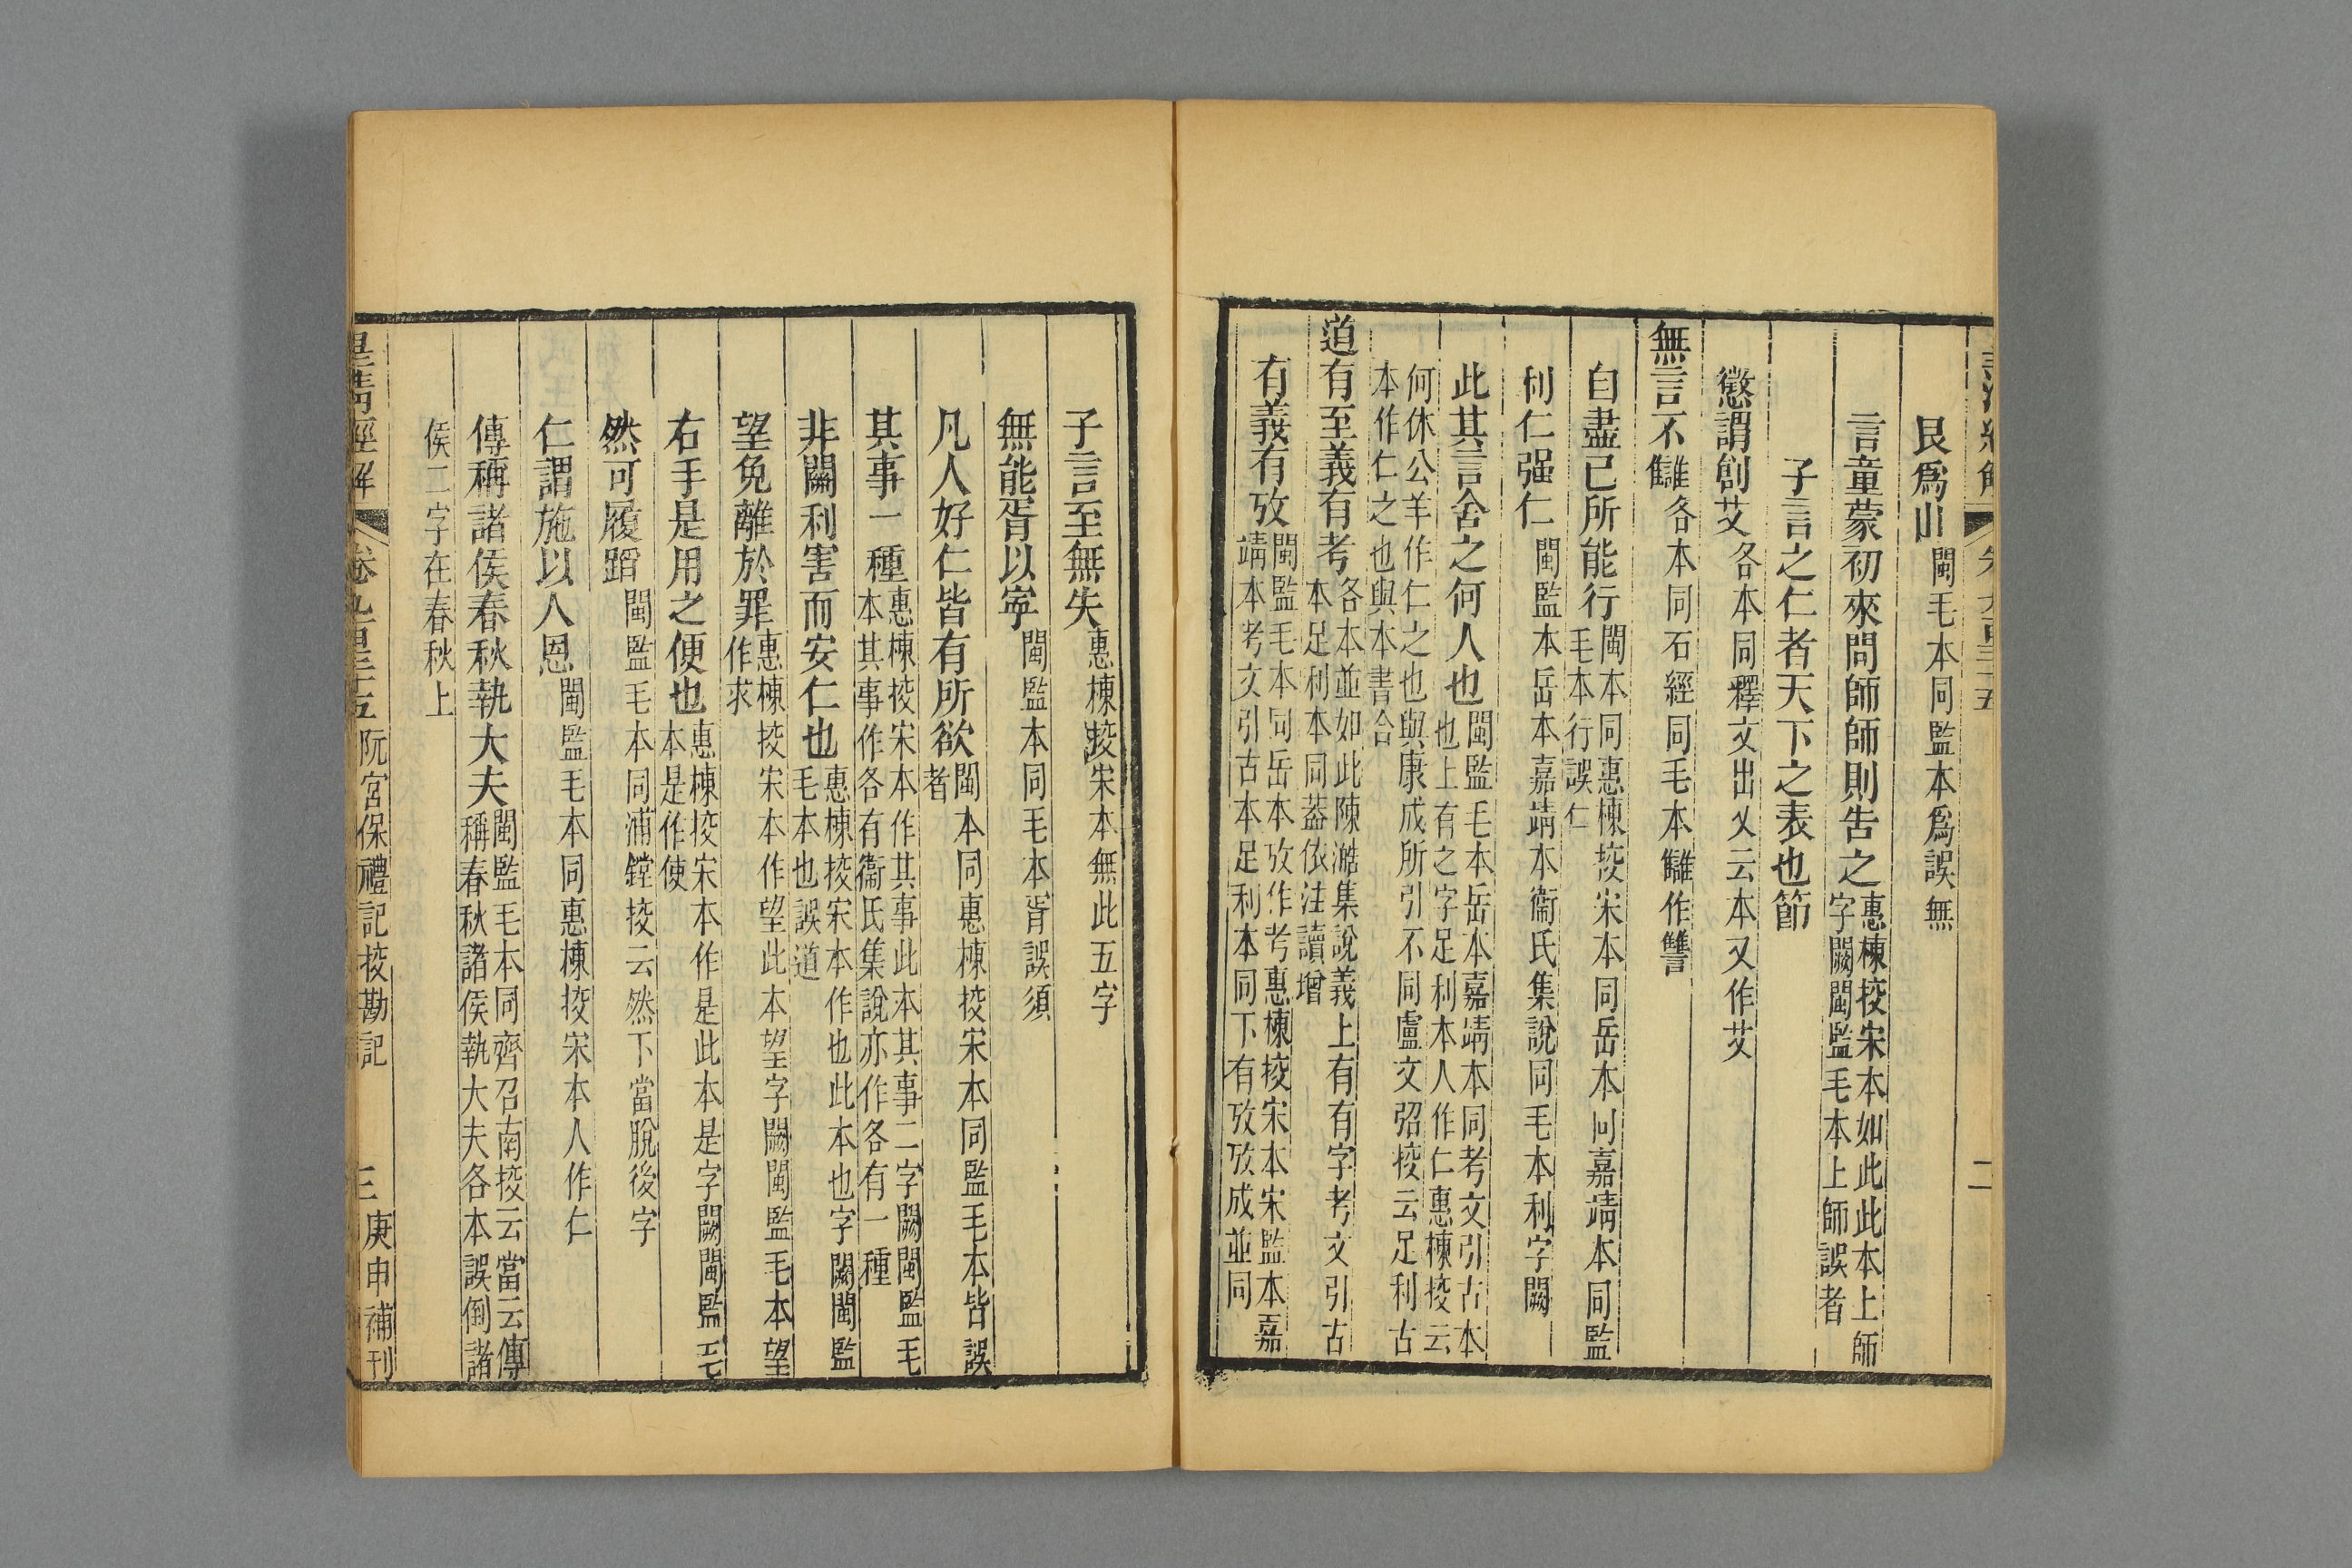 艮爲山閩毛本同監本爲誤無
言童蒙初來問師師則告之惠棟挍宋本如此此本上師字闕閩監毛本上師誤者
子言之仁者天下之表也節
懲謂創艾各本同釋文出乂云本又作艾
無言不讎各本同石經同毛本讎作讐
自盡已所能行閩本同惠棟挍宋本同岳本同嘉靖本同監毛本行誤仁
利仁强仁閩監本岳本嘉靖本衞氏集說同毛本利字闕
此其言舍之何人也閩監毛本岳本嘉靖本同考文引古本也上有之字足利本人作仁惠棟挍云
何休公羊作仁之也與康成所引不同盧文弨挍云足利古本作仁之也與本書合
道有至義有考各本並如此陳澔集說義上有有字考文引古本足利本同葢依注讀增
有義有攷閩監毛本同岳本攷作考惠棟挍宋本宋監本嘉靖本考文引古本足利本同下有攷攷成並同
二
子言至無失惠棟挍宋本無此五字
無能胥以寧閩監本同毛本胥誤須
凡人好仁皆有所欲閩本同惠棟挍宋本同監毛本皆誤者
其事一種惠棟挍宋本作其事此本其事二字闕閩監毛本其事作各有衞氏集說亦作各有一種
非關利害而安仁也惠棟挍宋本作也此本也字闕閩監毛本也誤道
望免離於罪惠棟挍宋本作望此本望字闕閩監毛本望作求
右手是用之便也惠棟挍宋本作是此本是字闕閩監毛本是作使
然可履蹈閩監毛本同浦鏜挍云然下當脫後字
仁謂施以人恩閩監毛本同惠棟挍宋本人作仁
傳稱諸侯春秋執大夫閩監毛本同齊召南挍云當云傳稱春秋諸侯執大夫各本誤倒諸
侯二字在春秋上
皇淸經解 阮宮保禮記挍勘記 三 庚申補刊